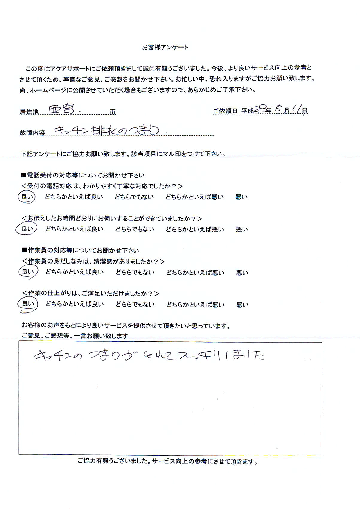 お客様アンケート
この度はアクアサポートにご依頼頂きまして誠に有難うございました。今後、より良いサービス向上の参考と
させて頂くため、率直なご意見、ご感想をお聞かせ下さい。お忙しい中、恐れ入りますがご協力お願い致します。
尚、ホームページに公開させていただく場合もございますので、あらかじめご了承下さい。
居住地 西宮 市 ご依頼日 平成 年 5月 日
故障内容 キッチン排水のつまり
下記アンケートにご協力お願い致します。該当項目にマル印をつけて下さい。
■電話受付の対応等についてお聞かせ下さい
<受付の電話対応は、わかりやすく丁寧な対応でしたか?>
良い どちらかといえば良い どちらでもない どちらかといえば悪い 悪い
<お伝えしたお時間どおりにお伺いすることができていましたか?>
良い どちらかといえば良い どちらでもない どちらかといえば悪い 悪い
■作業員の対応等についてお聞かせ下さい
<作業員の身だしなみは、清潔感がありましたか?>
良い どちらかといえば良い どちらでもない どちらかといえば悪い 悪い
<作業の仕上がりは、ご満足いただけましたか?>
良い どちらかといえば良い どちらでもない どちらかといえば悪い 悪い
お客様のお声をもとにより良いサービスを提供させて頂きたいと思っています。
ご意見、ご感想等、一言お願い致します
キッチンのつまりがとれてスッキリしました
ご協力有難うございました。サービス向上の参考にさせて頂きます。